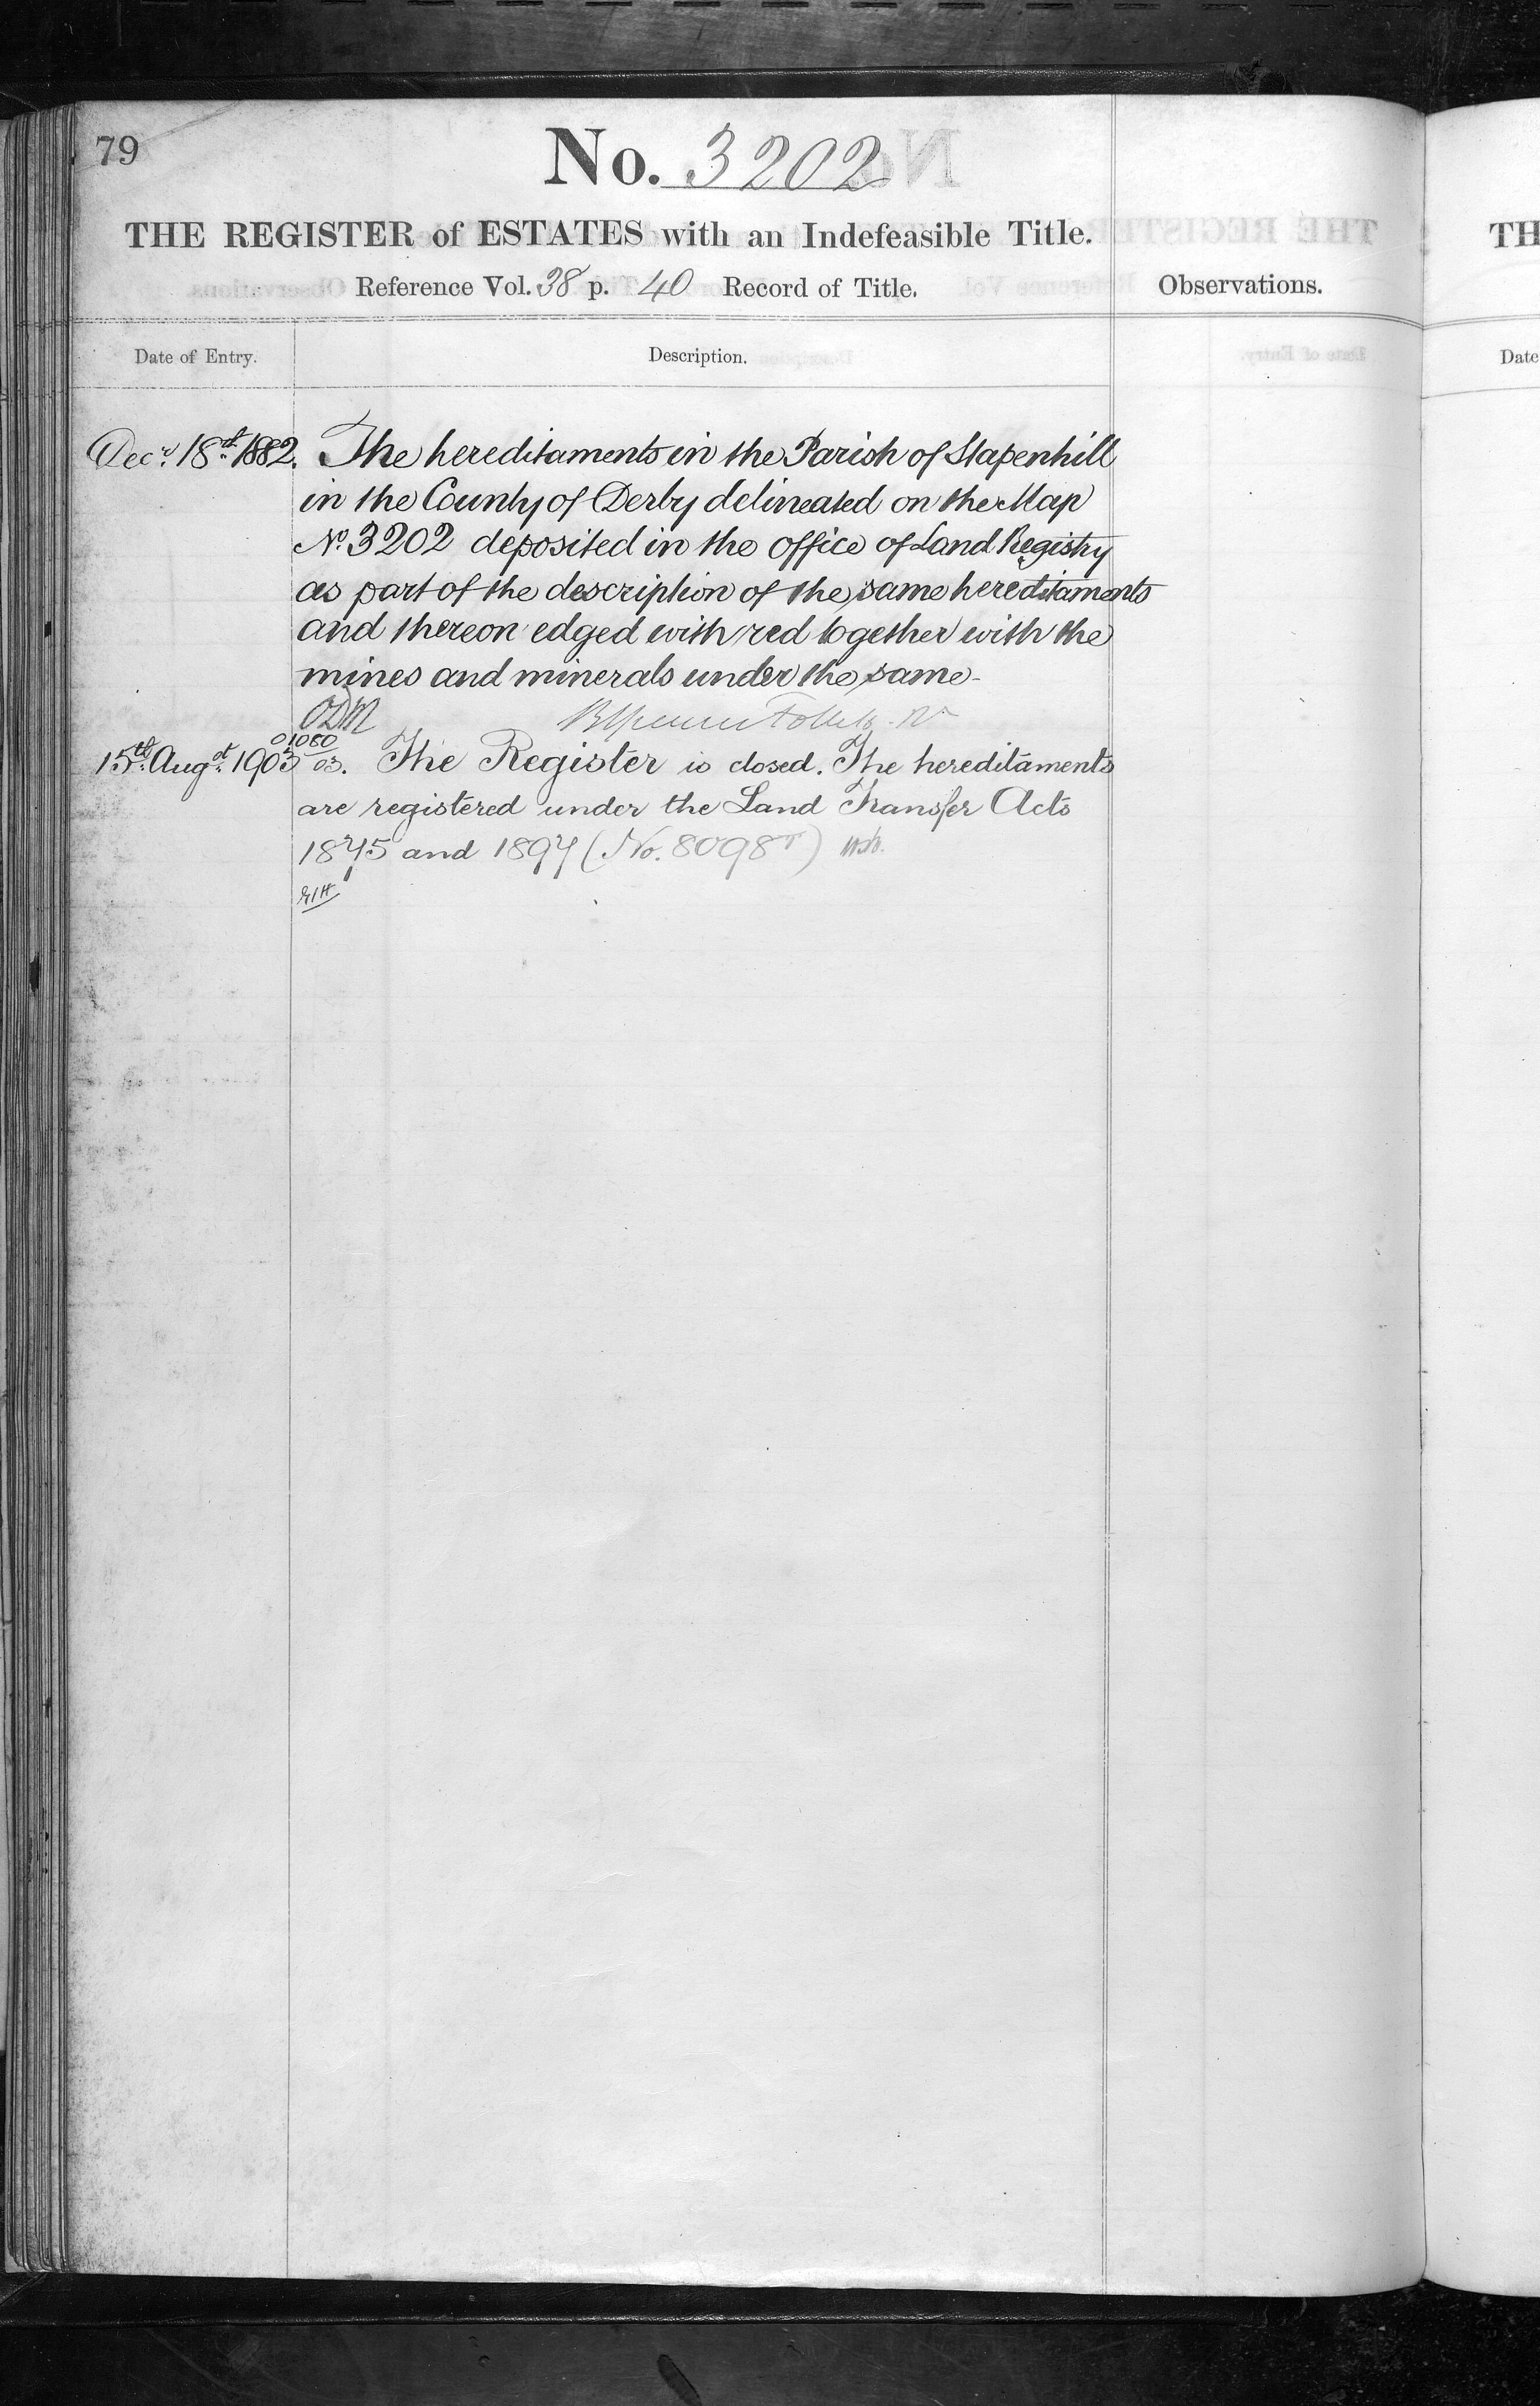 79
No. 3202
THE REGISTER of ESTATES with an Indefeasible Title.
Reference Vol. 38 p. 40 Record of Title.
Observations.
Date of Entry.
Description.
Decr 18th 1882. The hereditaments in the Parish of Stapenhill
in the County of Derby delineated on the Map
No. 3202 deposited in the office of Land Registry
as part of the description of the same hereditaments
and thereon edged with red together with the
mines and minerals under the same-
01080
15th Augst 1903 03. The Register is closed. The hereditaments
are registered under the Land Transfer Acts
1875 and 1897 (No. 8098)
TH
Date